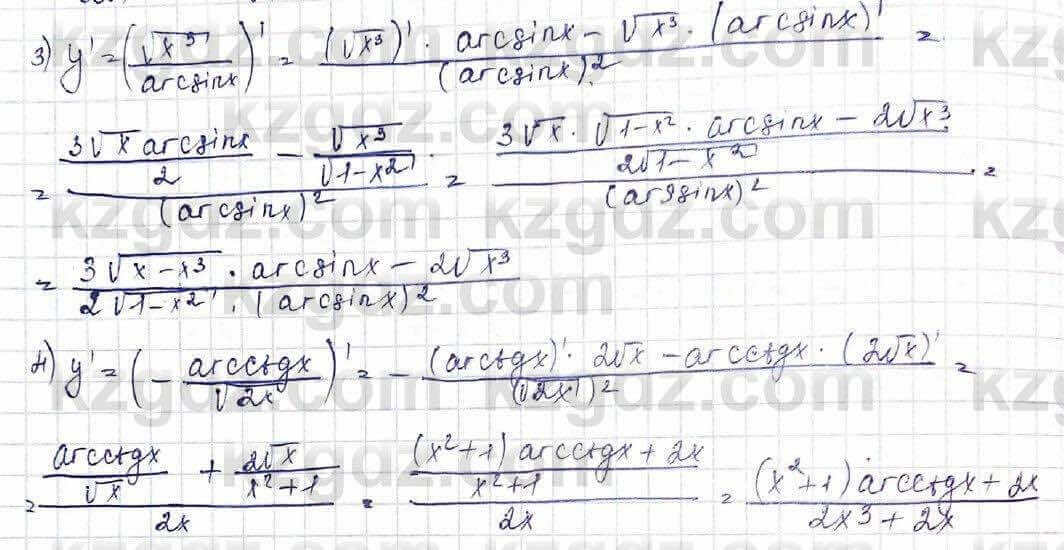 3) y' = (√x³ / arcsinx)' = ((√x³)' · arcsinx − √x³ · (arcsinx)') / (arcsinx)² =
= ((3√x arcsinx)/2 − √x³/√1−x²) / (arcsinx)² = ((3√x · √1−x² · arcsinx − 2√x³) / (2√1−x²)) / (arssinx)² =
= (3√x−x³ · arcsinx − 2√x³) / (2√1−x² · (arcsinx)²)
4) y' = (− arcctgx / √2x)' = − ((arcctgx)' · 2√x − arcctgx · (2√x)') / (√2x)² =
= (arcctgx/√x + 2√x/(x²+1)) / 2x = (((x²+1) arcctgx + 2x) / (x²+1)) / 2x = ((x²+1) arcctgx + 2x) / (2x³ + 2x)
kzgdz.com